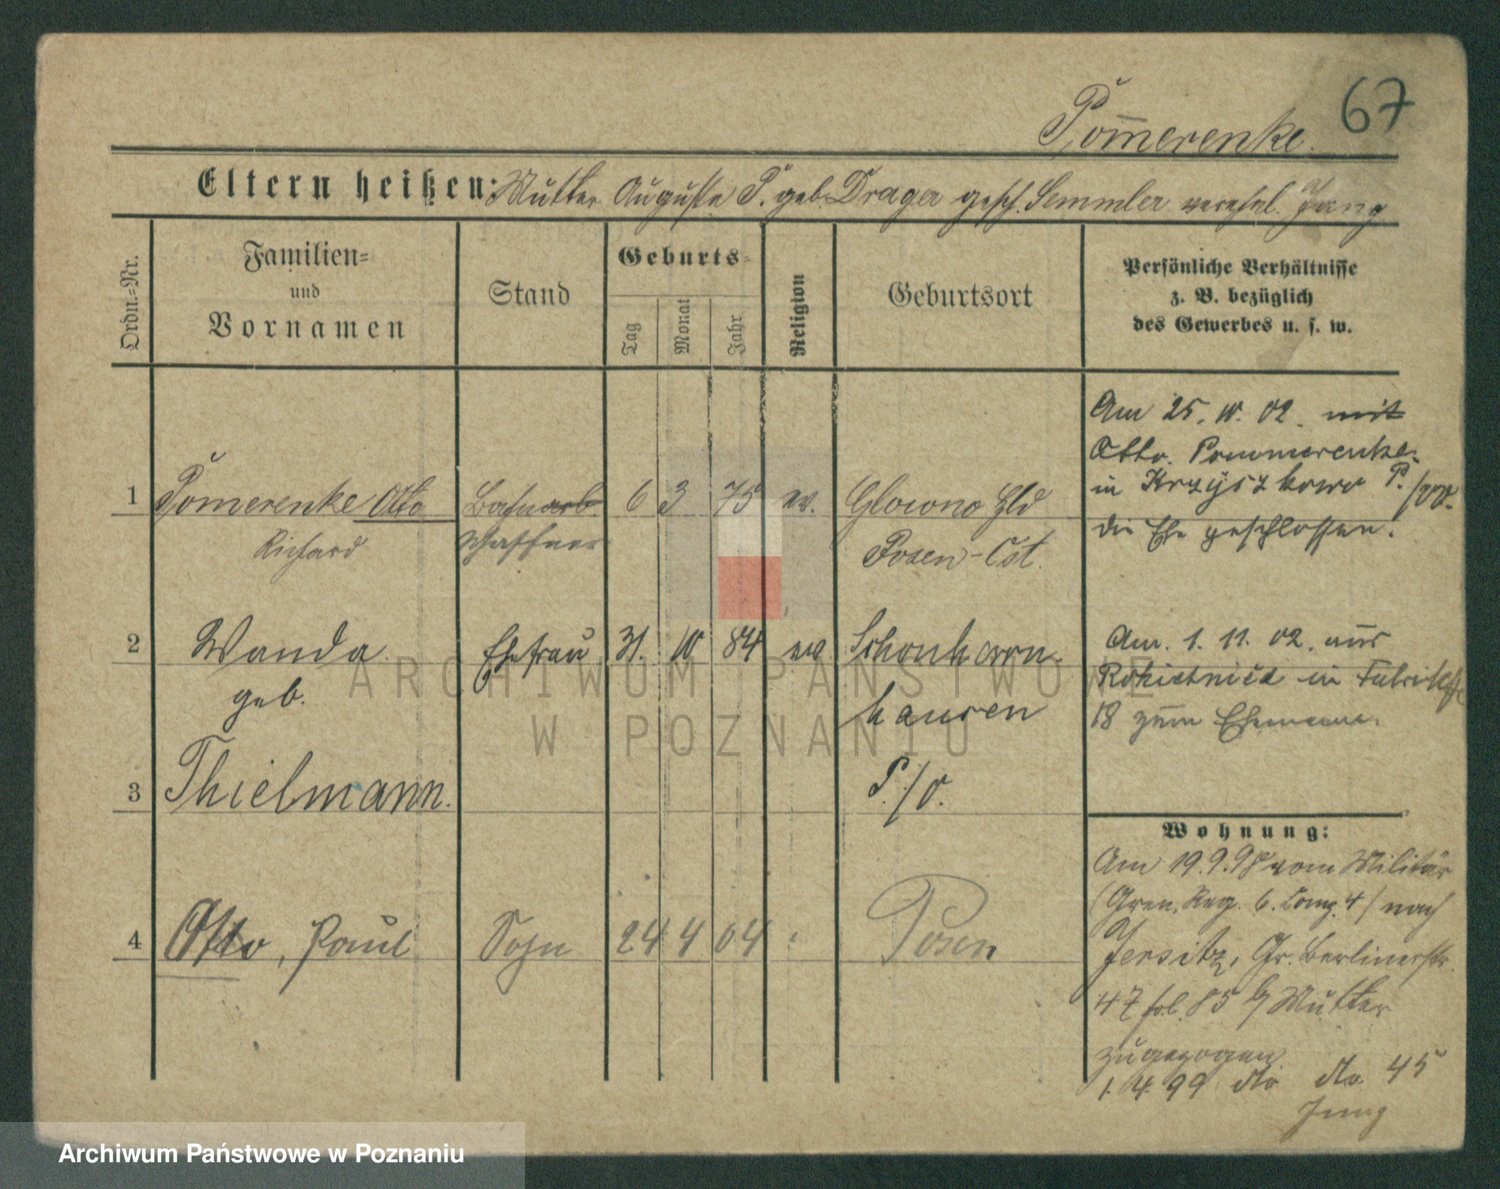 67
Pom̅erenke.
Eltern heißen: Mutter Auguste P. geb. Drager gesch. Semmler verehel. Jung
Ordn.=Nr.
Familien=
und
Vornamen
Stand
Geburts=
Tag
Monat
Jahr
Religion
Geburtsort
Persönliche Verhältnisse
z. B. bezüglich
des Gewerbes u. s. w.
1 Pomerenke Otto 6 3 75 ev. Glowno Hld
Richard Schaffner Posen-Ost.
Am 25. 10. 02. mit
Otto. Pommerenke.
in Krzyszkowo P./W.
die Ehe geschlossen.
2 Wanda Ehefrau 31. 10 84 ev
geb. hausen
3 Thielmann. P./O.
Am. 1. 11. 02. aus
in Fabrikstr
18 zum Ehemann.
4 Otto, Paul Sohn 24 4 04 " Posen
Wohnung:
Am 19.9.98 vom Militär
(Gren. Reg. 6. Comp. 4) nach
Jersitz, Gr. Berlinerstr.
47 fol. 85 b/ Mutter
zugezogen
1. 4. 99 dto dto 45
Jung
ARCHIWUM PAŃSTWOWE
W POZNANIU
Archiwum Państwowe w Poznaniu